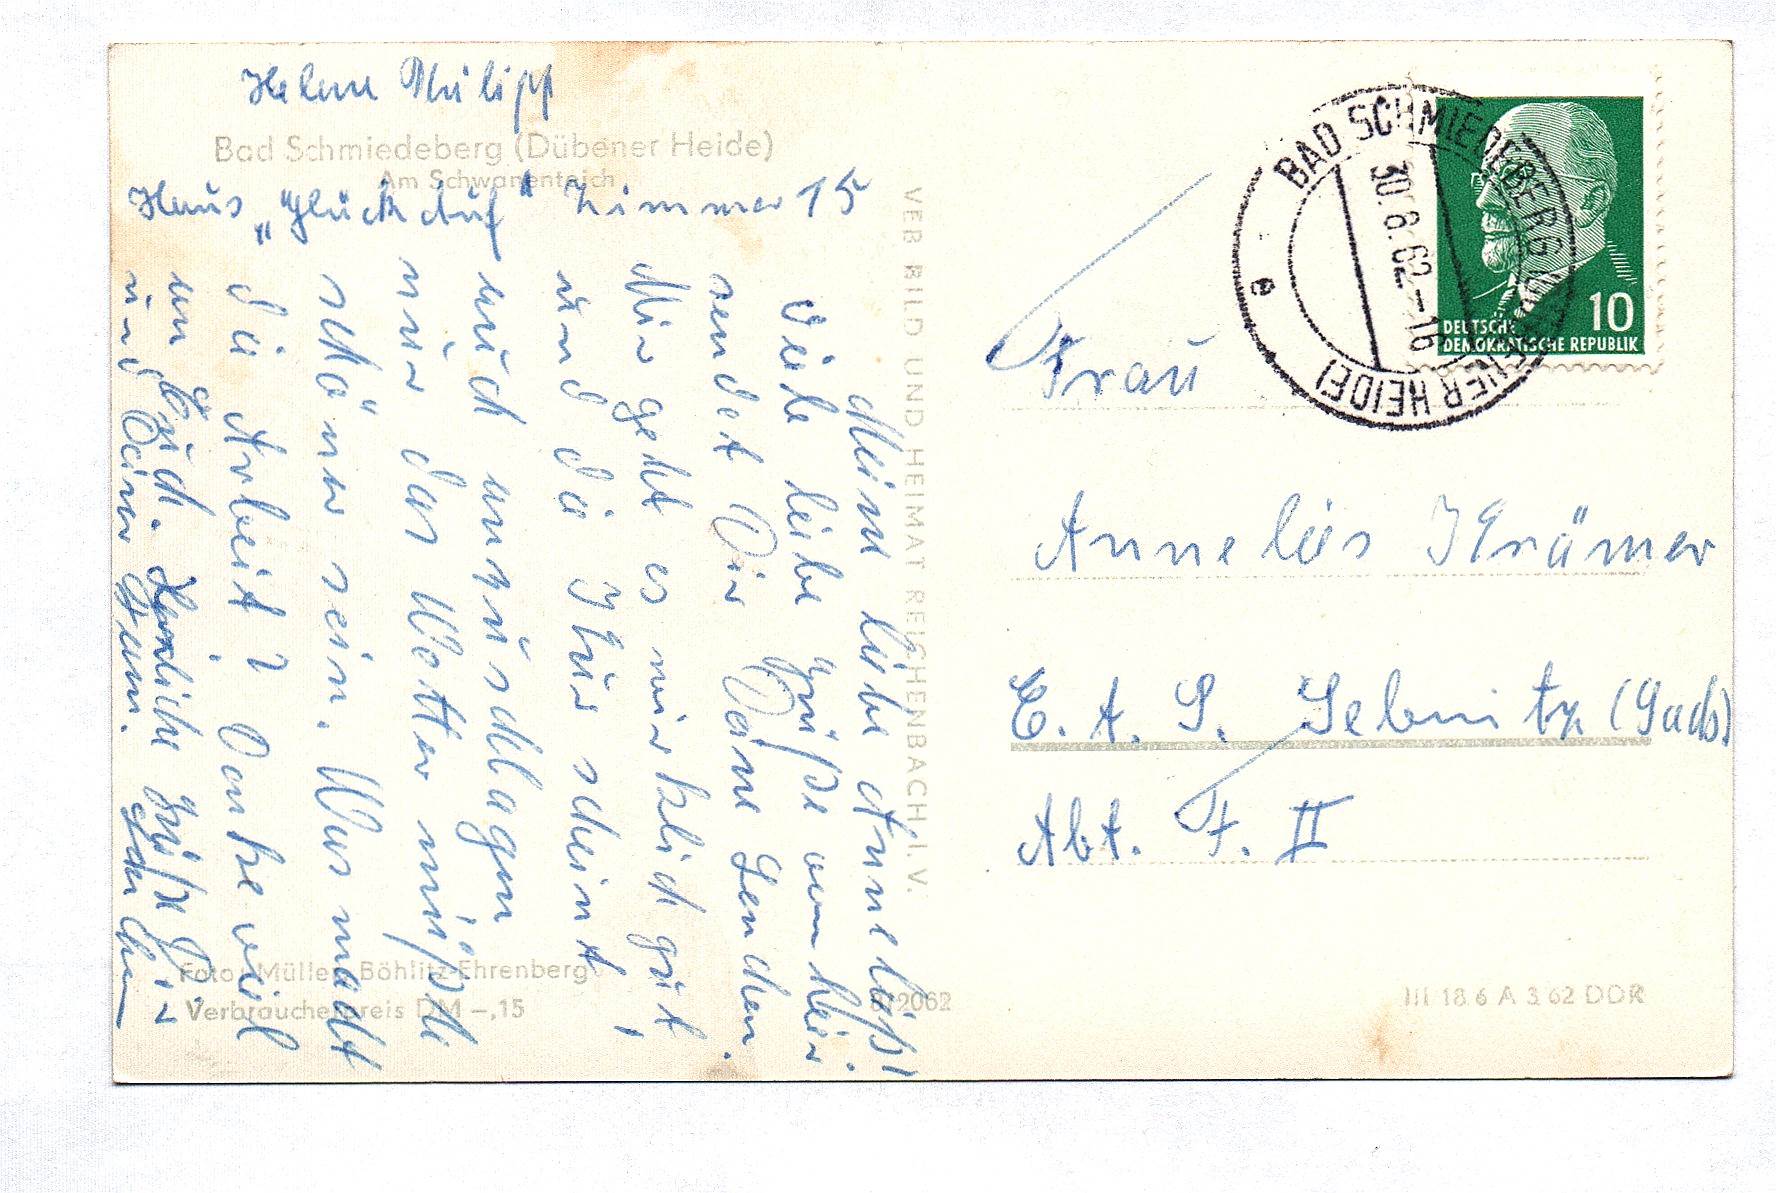 Helene Philipp
Bad Schmiedeberg (Dübener Heide)
Am Schwanenteich
Haus „Glück Auf“ Zimmer 15
Meine liebe Annelies!
Viele liebe Grüße von hier
sendet Dir Deine Lenchen.
Mir geht es wirklich gut,
und die Kur scheint
auch anzuschlagen
nur das Wetter müßte
schöner sein. Was macht
die Arbeit? Danke viel
an Euch. Herzliche Grüße Dir
und Deiner Fam. Lenchen
VEB BILD UND HEIMAT REICHENBACH I. V.
Foto: Müller, Böhlitz-Ehrenberg
Verbraucherpreis DM –,15
8/2062
BAD SCHMIEDEBERG (DÜBENER HEIDE)
30.6.62–16
e
10
DEUTSCHE
DEMOKRATISCHE REPUBLIK
Frau
Annelies Krämer
E. A. S. Sebnitz (Sachs)
Abt. F. II
III 18 6 A 3 62 DDR